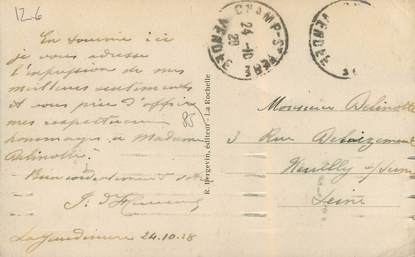 12-6
En tournée ici
je vous adresse
l'expression de mes
meilleurs sentiments
et vous prie d'offrir
mes respectueux
hommages à Madame
Delinotte.
Bien cordialement à v
J. d'
La Jaudonnière 24.10.28
85
R. Bergevin, éditeur - La Rochelle
CHAMP-St-PERE
24-10
28
VENDEE
VENDEE
Monsieur Delinotte
3 Rue
Neuilly s/Seine
Seine